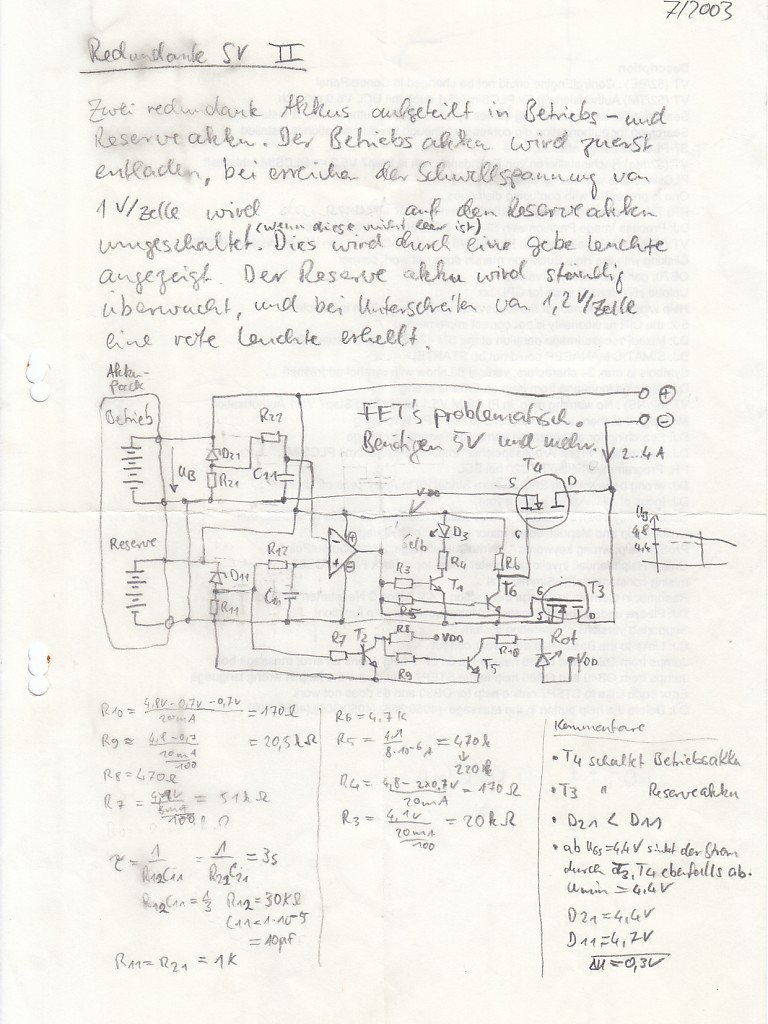 7/2003
Redundante SV II
Zwei redundante Akkus aufgeteilt in Betriebs- und
Reserveakku. Der Betriebsakku wird zuerst
entladen, bei erreichen der Schwellspannung von
1V/Zelle wird auf den Reserveakku
(wenn diese nicht leer ist)
umgeschaltet. Dies wird durch eine gebe Leuchte
angezeigt. Der Reserveakku wird ständig
überwacht, und bei Unterschreiten von 1,2V/Zelle
eine rote Leuchte erhellt.
Akku-
Pack
Betrieb
UB
D21
R21
R21
C21
FET's problematisch.
Benötigen 5V und mehr.
+
-
2...4A
T4
S
D
G
VDD
Reserve
D11
R11
R12
C11
-
+
Gelb
D3
R4
R3
R5
T1
R6
T6
T3
G
S
D
UB
4,8
4,4
R7
T2
R8
VDD
R9
T5
R10
Rot
VDD
R10 = 4,8V-0,7V-0,7V / 20mA = 170Ω
R9 ≈ 4,8-0,7 / 20mA/100 = 20,5kΩ
R8 = 470Ω
R7 = = 51kΩ
τ = 1/R12C11 = 1/R22C21 = 3s
R12C11 = 1/3 R12 = 30KΩ
C11 < 1·10^-5
= 10µF
R11 = R21 = 1K
R6 = 4,7K
R5 = 4,1 / 8·10^-6A = 470k
↓
220k
R4 = 4,8-2x0,7V / 20mA = 170Ω
R3 = 4,1V / 20mA/100 = 20kΩ
Kommentare
• T4 schaltet Betriebsakku
• T3 " Reserveakku
• D21 < D11
• ab UGS=4,4V sinkt der Strom
durch T3, T4 ebenfalls ab.
Umin = 4,4V
D21 = 4,4V
D11 = 4,7V
ΔU = 0,3V